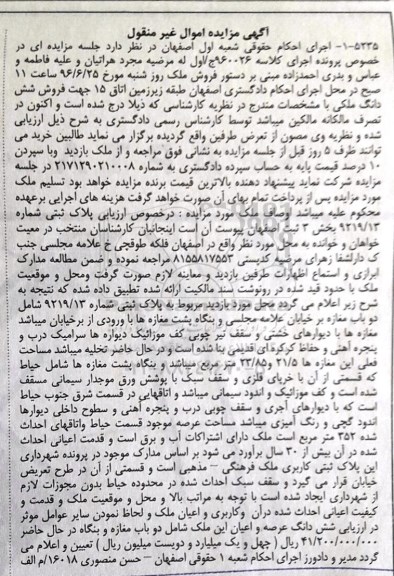 آگهی مزایده اموال غیر منقول
۱-۵۳۳۵- اجرای احکام حقوقی شعبه اول اصفهان در نظر دارد جلسه مزایده ای در
خصوص پرونده اجرای کلاسه ۹۶۰۰۲۶ج/اول له مرضیه مجرد هراتیان و علیه فاطمه و
عباس و بدری احمدزاده مبنی بر دستور فروش ملک روز شنبه مورخ ۹۶/۶/۲۵ ساعت ۱۱
صبح در محل اجرای احکام دادگستری اصفهان طبقه زیرزمین اتاق ۱۵ جهت فروش شش
دانگ ملکی با مشخصات مندرج در نظریه کارشناسی که ذیلا درج شده است و اکنون در
تصرف مالکانه مالکین میباشد توسط کارشناس رسمی دادگستری به شرح ذیل ارزیابی
شده و نظریه وی مصون از تعرض طرفین واقع گردیده برگزار می نماید طالبین خرید می
توانند ظرف ۵ روز قبل از جلسه مزایده به نشانی فوق مراجعه و از ملک بازدید وبا سپردن
۱۰ درصد قیمت پایه به حساب سپرده دادگستری به شماره ۲۱۷۱۲۹۰۲۱۰۰۰۸ در جلسه
مزایده شرکت نماید پیشنهاد دهنده بالاترین قیمت برنده مزایده خواهد بود تسلیم ملک
مورد مزایده پس از پرداخت تمام بهای آن صورت خواهد گرفت هزینه های اجرایی برعهده
محکوم علیه میباشد اوصاف ملک مورد مزایده : درخصوص ارزیابی پلاک ثبتی شماره
۹۲۱۹/۱۳ بخش ۳ ثبت اصفهان پیوست آن است اینجانبان کارشناسان منتخب در معیت
خواهان و خوانده به محل مورد نظر واقع در اصفهان فلکه طوقچی خ علامه مجلسی جنب
ک دارالشفا زهرای مرضیه کدپستی ۸۱۵۵۸۱۷۵۵۳ مراجعه نموده و ضمن مطالعه مدارک
ابرازی و استماع اظهارات طرفین بازدید و معاینه لازم صورت گرفت ومحل و موقعیت
ملک با حدود قید شده در رونوشت سند مالکیت ارائه شده تطبیق داده شده که نتیجه به
شرح زیر اعلام می گردد محل مورد بازدید مربوط به پلاک ثبتی شماره ۹۲۱۹/۱۳ شامل
دو باب مغازه بر خیابان علامه مجلسی و بنگاه پشت مغازه ها با ورودی از برخیابان میباشد
مغازه ها با دیوارهای خشتی و سقف تیر چوبی کف موزائیک دیواره ها سرامیک درب و
پنجره آهنی و حفاظ کرکره ای قدیمی بنا شده است و در حال حاضر تخلیه میباشد مساحت
فعلی این مغازه ها ۲۱/۵ و ۲۳/۸۵ متر مربع میباشد و بنگاه پشت مغازه ها شامل حیاط
که قسمتی از آن با خرپای فلزی و سقف سبک با پوشش ورق موجدار سیمانی مسقف
شده است و کف موزائیک و اندود سیمانی میباشد و اتاقهایی در قسمت شرق جنوب حیاط
است که با دیوارهای آجری و سقف چوبی درب و پنجره آهنی و سطوح داخلی دیوارها
اندود گچی و رنگ آمیزی میباشد مساحت عرصه موجود قسمت حیاط واتاقهای احداث
شده ۳۵۲ متر مربع است ملک دارای اشتراکات آب و برق است و قدمت اعیانی احداث
شده در آن بیش از ۳۰ سال برآورد می شود بر اساس مدارک موجود در پرونده شهرداری
این پلاک ثبتی کاربری ملک فرهنگی – مذهبی است و قسمتی از آن در طرح تعریض
خیابان قرار می گیرد و سقف سبک احداث شده در محدوده حیاط بدون مجوزات لازم
از شهرداری ایجاد شده است با توجه به مراتب بالا و محل و موقعیت ملک و قدمت و
کیفیت اعیانی احداث شده درآن وکاربری و اعیان ملک و لحاظ نمودن سایر عوامل موثر
در ارزیابی شش دانگ عرصه و اعیان این ملک شامل دو باب مغازه و بنگاه در حال حاضر
۴۱/۲۰۰/۰۰۰/۰۰۰ ریال ( چهل و یک میلیارد و دویست میلیون ریال ) تعیین و اعلام می
گردد مدیر و دادورز اجرای احکام شعبه ۱ حقوقی اصفهان – حسن منصوری ۱۶۰۱۸/م الف